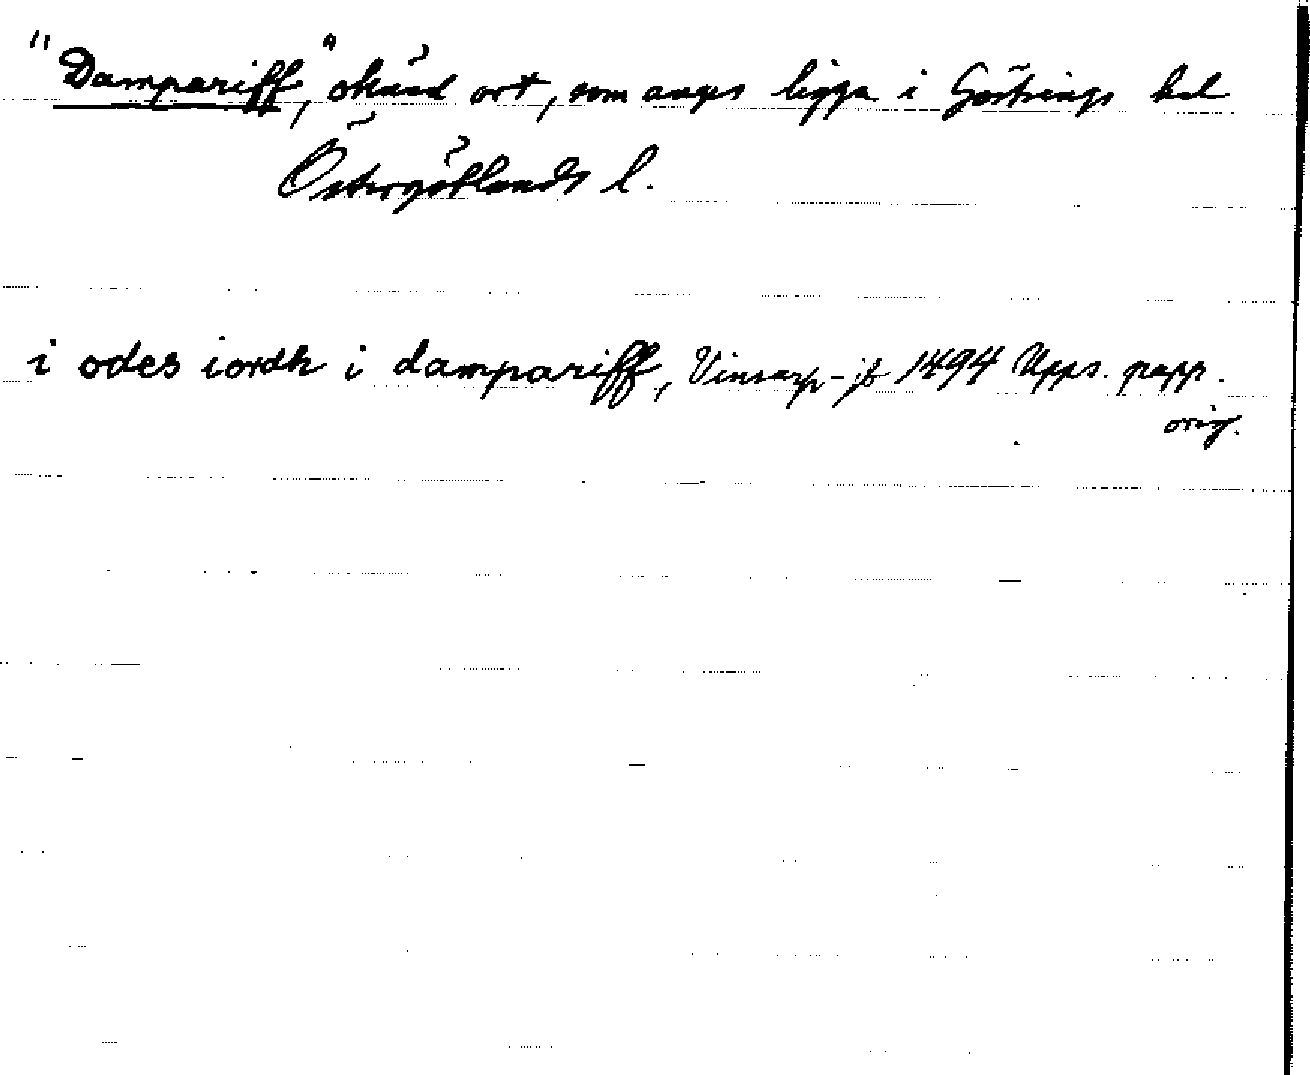 "Dampariff", okänd ort, som anges ligga i Göstrings hd
Östergötlands l.
i odes iordh i dampariff, Vinsarp-jb 1494 Upps. papp.
orig.